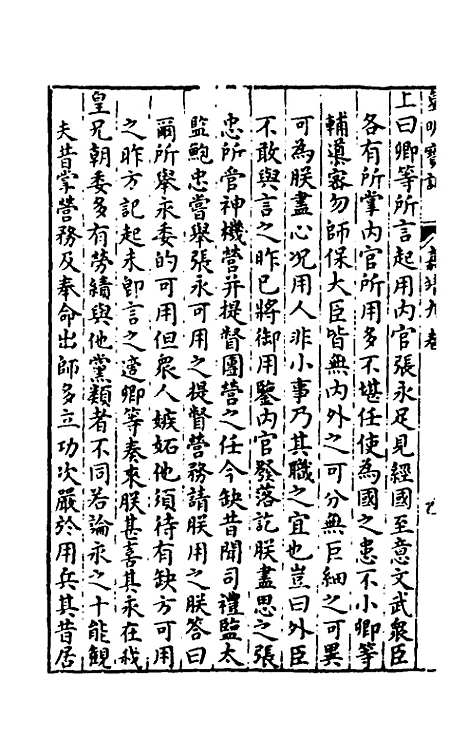 皇明寶訓
嘉靖九卷
上曰卿等所言起用內官張永足見經國至意文武衆臣
各有所掌內官所用多不堪任使為國之患不小卿等
輔導密勿師保大臣皆無內外之可分無巨細之可異
可為朕盡心況用人非小事乃其職之宜也豈曰外臣
不敢與言之昨已將御用監內官發落記朕盡思之張
忠所管神機營并提督團營之任今缺昔聞司禮監太
監鮑忠嘗舉張永可用之提督營務請朕用之朕答曰
爾所舉永委的可用但衆人嫉妬他須待有缺方可用
之昨方記起未即言之適卿等奏來朕甚喜其永在我
皇兄朝委多有勞績與他黨類者不同若論永之十能觀
夫昔掌營務及奉命出師多立功次嚴於用兵其昔居